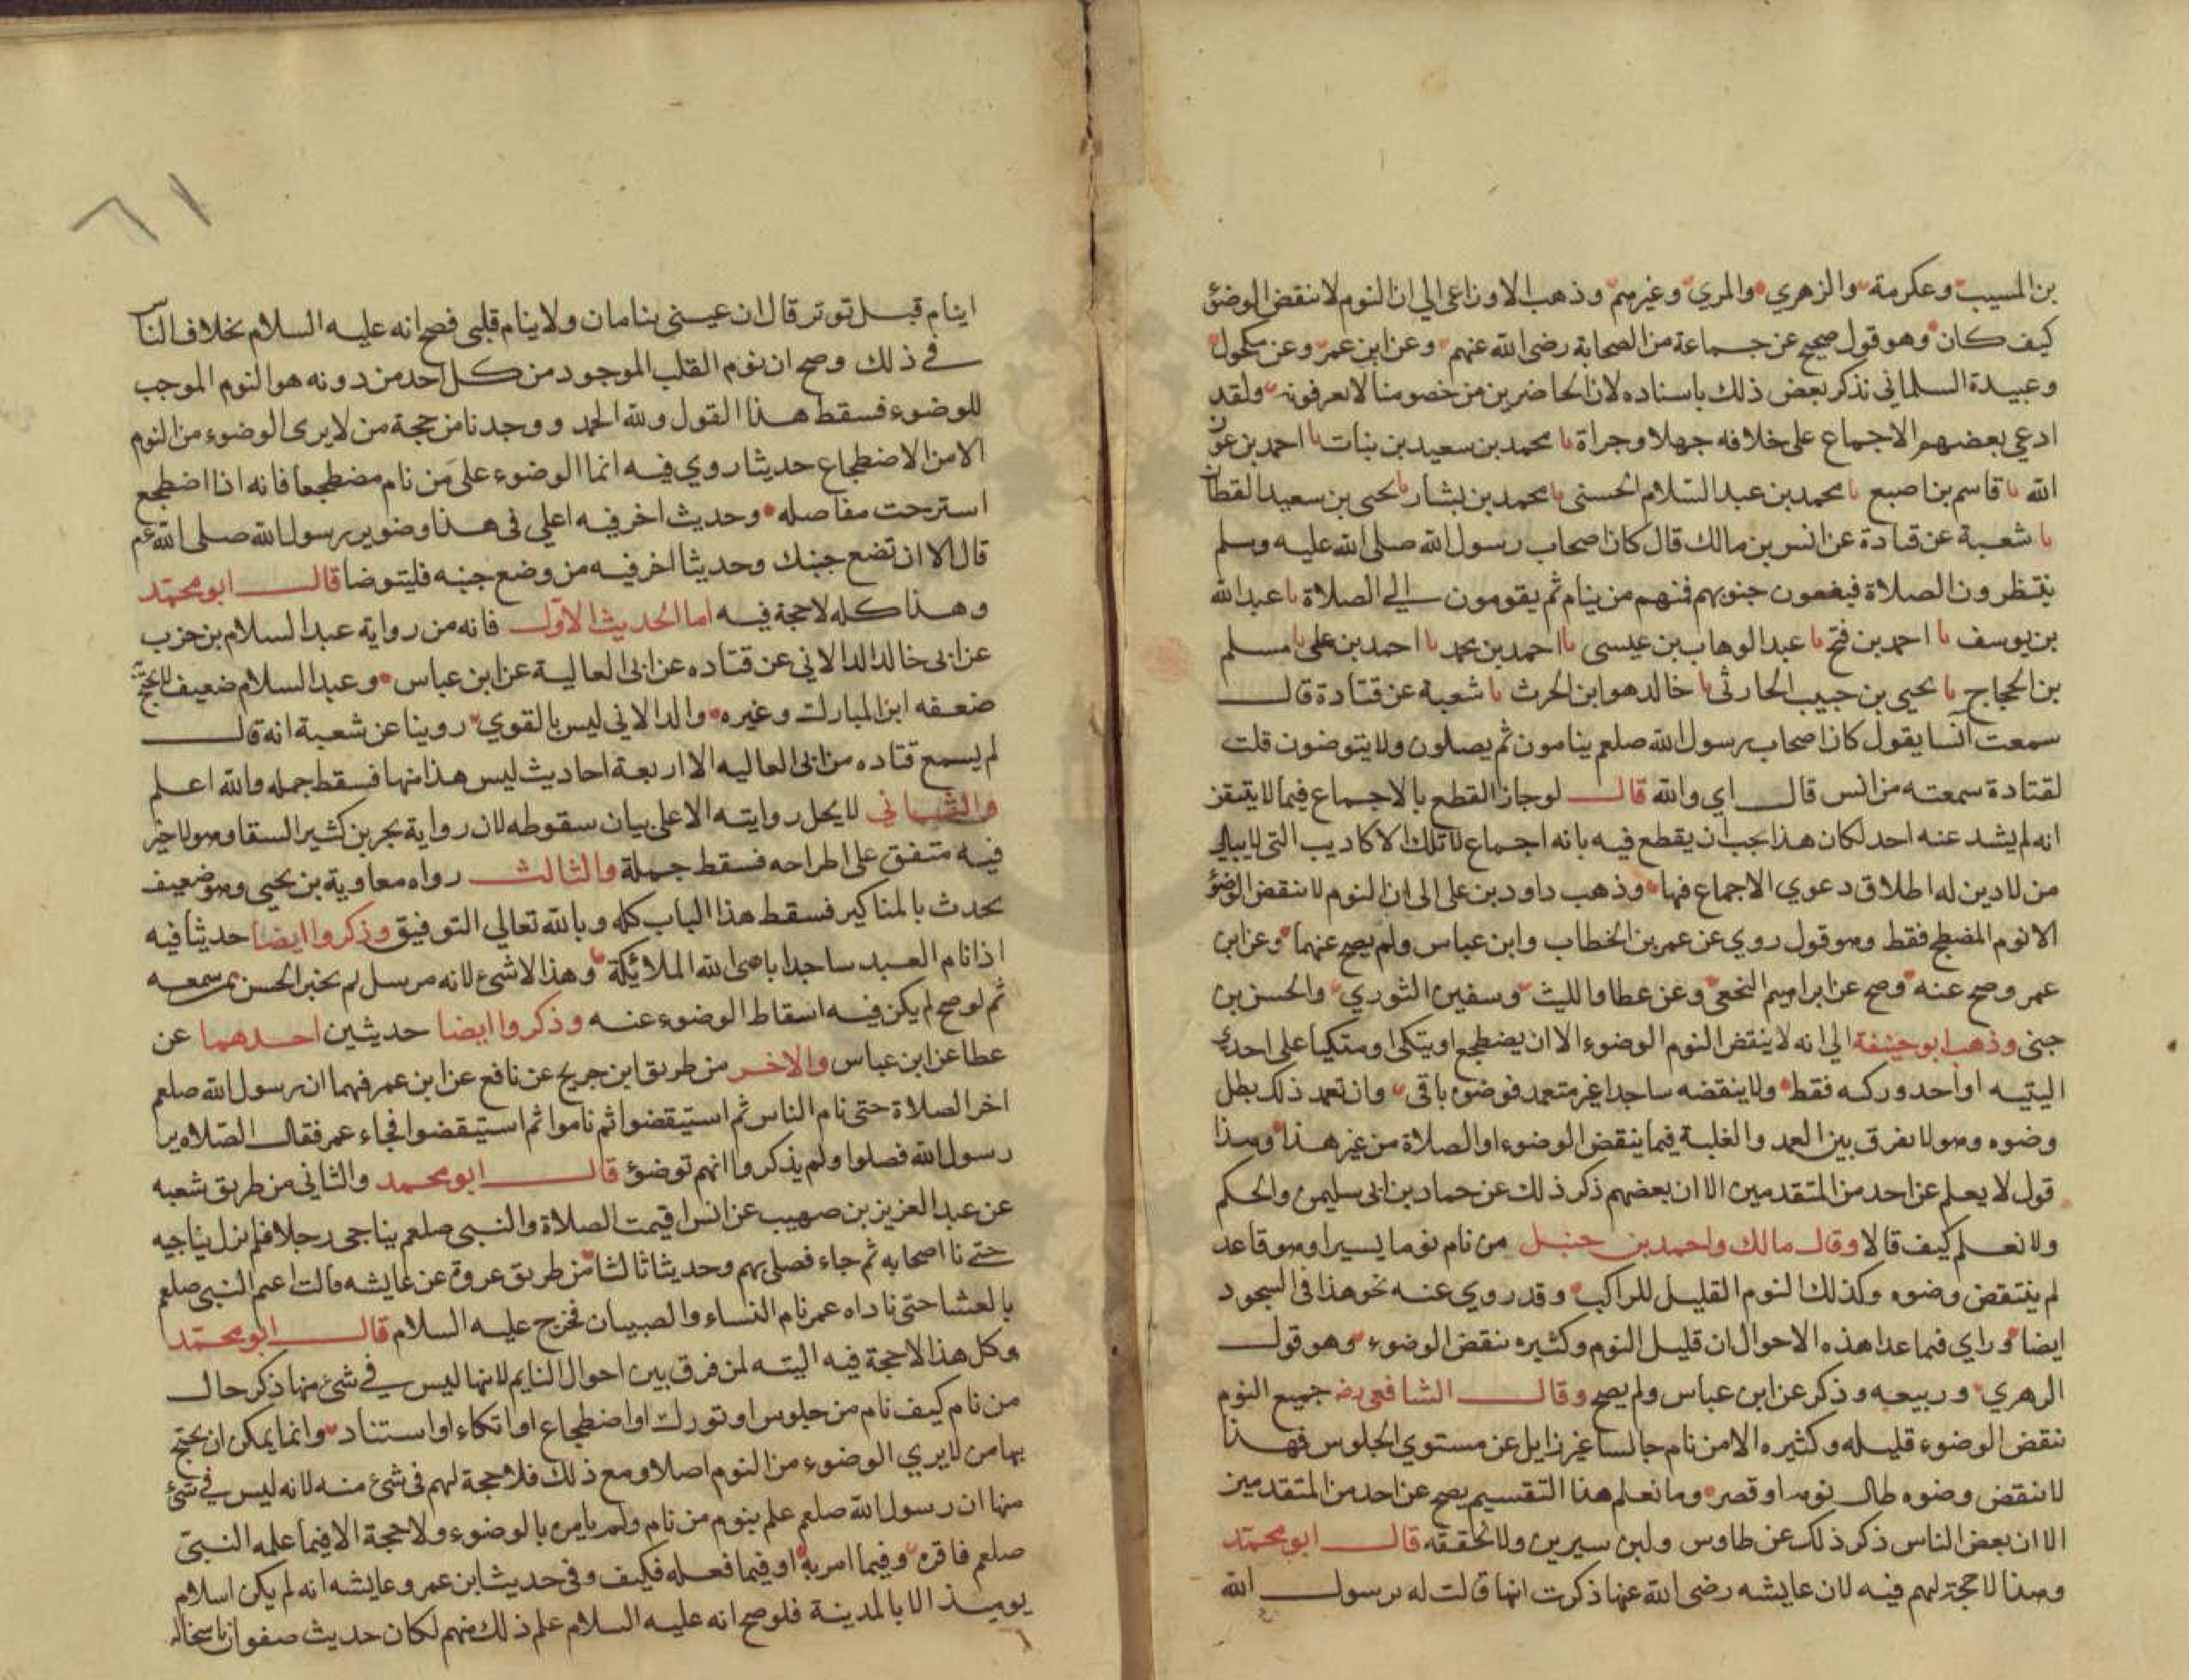 بن المسيب وعكرمة والزهري والمزي وغيرهم وذهب الاوزاعي الي ان النوم لا ينقض الوضؤ
كيف كان وهو قول صحيح عن جماعة من الصحابة رضي الله عنهم وعن ابن عمر وعن مكحول
وعبيدة السلماني نذكر بعض ذلك باسناده لان الحاضرين من خصومنا لا يعرفونه ولقد
ادعي بعضهم الاجماع على خلافه جهلا وجراة نا محمد بن سعيد بن بنات نا احمد بن عون
الله نا قاسم بن اصبع نا محمد بن عبد السلام الحسنى نا محمد بن بشار نا يحيى بن سعيد القطان
نا شعبة عن قتادة عن انس بن مالك قال كان اصحاب رسول الله صلى الله عليه وسلم
ينتظرون الصلاة فيضعون جنوبهم فمنهم من ينام ثم يقومون الي الصلاة نا عبد الله
بن يوسف نا احمد بن فتح نا عبد الوهاب بن عيسى نا احمد بن محمد نا احمد بن على نا مسلم
بن الحجاج نا يحيى بن حبيب الحارثى نا خالد هو ابن الحرث نا شعبة عن قتادة قال
سمعت انسا يقول كان اصحاب رسول الله صلعم ينامون ثم يصلون ولا يتوضون قلت
لقتادة سمعته من انس قال اي والله قال لو جاز القطع بالاجماع فيما لا يتيقن
انه لم يشذ عنه احد لكان هذا يجب ان يقطع فيه بانه اجماع لا تلك الاكاذيب التى لا يبالي
من لا دين له اطلاق دعوي الاجماع فيها وذهب داود بن على الى ان النوم لا ينقض الوضؤ
الا نوم المضطجع فقط وهو قول روي عن عمر بن الخطاب وابن عباس ولم يصح عنهما وعن ابن
عمر وصح عنه وصح عن ابراهيم النخعي وعن عطا والليث وسفين الثوري والحسن بن
حيى وذهب ابو حنيفة الي انه لا ينتقض النوم الوضوء الا ان يضطجع او يتكى او متكيا على احدى
اليتيه او احد وركيه فقط ولا ينقضه ساجدا غير متعمد فوضوه باقى وان تعمد ذلك بطل
وضوه وهو لا يفرق بين العمد والغلبة فيما ينقض الوضوء او الصلاة من غير هذا وهذا
قول لا يعلم عن احد من المتقدمين الا ان بعضهم ذكر ذلك عن حماد بن ابى سليمن والحكم
ولا نعلم كيف قالا وقال مالك واحمد بن حنبل من نام نوما يسيرا وهو قاعد
لم ينتقض وضوه وكذلك النوم القليل للراكب وقد روي عنه نحو هذا فى السجود
ايضا وراي فيما عدا هذه الاحوال ان قليل النوم وكثيره ينقض الوضوء وهو قول
الزهري وربيعه وذكر عن ابن عباس ولم يصح وقال الشافعى رضه جميع النوم
ينقض الوضوء قليله وكثيره الا من نام جالسا غير زايل عن مستوي الجلوس فهذا
لا ينقض وضوه طال نومه او قصر وما نعلم هذا التقسيم يصح عن احد من المتقدمين
الا ان بعض الناس ذكر ذلك عن طاوس وابن سيرين ولا نحققه قال ابو محمد
وهذا لا حجة لهم فيه لان عايشه رضي الله عنها ذكرت انها قالت له يرسول الله
اينام قبل توتر قال ان عينى ينامان ولا ينام قلبى فصح انه عليه السلام بخلاف الناس
في ذلك وصح ان نوم القلب الموجود من كل احد من دونه هو النوم الموجب
للوضوء فسقط هذا القول ولله الحمد ووجدنا من حجة من لا يرى الوضوء من النوم
الا من الاضطجاع حديثا روي فيه انما الوضوء على من نام مضطجعا فانه اذا اضطجع
استرحت مفاصله وحديث اخر فيه اعلي فى هذا وضو يرسول الله صلى الله عم
قال لا ان تضع جنبك وحديثا اخر فيه من وضع جنبه فليتوضا قال ابو محمد
وهذا كله لا حجة فيه اما الحديث الاول فانه من رواية عبد السلام بن حرب
عن ابى خالد الدالانى عن قتاده عن ابى العالية عن ابن عباس وعبد السلام ضعيف لا يحتج به
ضعفه ابن المبارك وغيره والدالانى ليس بالقوي روينا عن شعبة انه قال
لم يسمع قتاده من ابى العاليه الا اربعة احاديث ليس هذا منها فسقط جمله والله اعلم
والثانى لا يحل روايته الا على بيان سقوطه لان رواية بحر بن كثير السقا وهو لا خير
فيه متفق على اطراحه فسقط جملة والثالث رواه معاوية بن يحيى وهو ضعيف
يحدث بالمناكير فسقط هذا الباب كله وبالله تعالى التوفيق وذكروا ايضا حديثا فيه
اذا نام العبد ساجدا باهى الله الملائكة وهذا لا شى لانه مرسل لم يخبر الحسن ممن سمعه
ثم لو صح لم يكن فيه اسقاط الوضوء عنه وذكروا ايضا حديثين احدهما عن
عطا عن ابن عباس والاخر من طريق ابن جريج عن نافع عن ابن عمر فيهما ان رسول الله صلعم
اخر الصلاة حتى نام الناس ثم استيقضوا ثم ناموا ثم استيقضوا فجاء عمر فقال الصلاه ير
رسول الله فصلوا ولم يذكروا انهم توضؤ قال ابو محمد والثانى من طريق شعبه
عن عبد العزيز بن صهيب عن انس اقيمت الصلاة والنبى صلعم يناجى رجلا فلم نزل يناجيه
حتى نا اصحابه ثم جاء فصلى بهم وحديثا ثالثا من طريق عروة عن عايشه قالت اعتم النبى صلعم
بالعشا حتى ناداه عمر نام النساء والصبيان فخرج عليه السلام قال ابو محمد
وكل هذا لا حجة فيه البته لمن فرق بين احوال النايم لانها ليس في شئ منها ذكر حال
من نام كيف نام من جلوس او تورك او اضطجاع او اتكاء او استناد وانما يمكن ان يحتج
بها من لا يري الوضوء من النوم اصلا ومع ذلك فلا حجة لهم فى شئ منه لانه ليس في شئ
منها ان رسول الله صلعم علم بنوم من نام ولم يامره بالوضوء ولا حجة الا فيما علمه النبى
صلعم فاقره وفيما امر به او فيما فعله فكيف وفى حديث ابن عمر وعايشه انه لم يكن اسلام
يوميذ الا بالمدينة فلو صح انه عليه السلام علم ذلك منهم لكان حديث صفوان ناسخا له
٦١